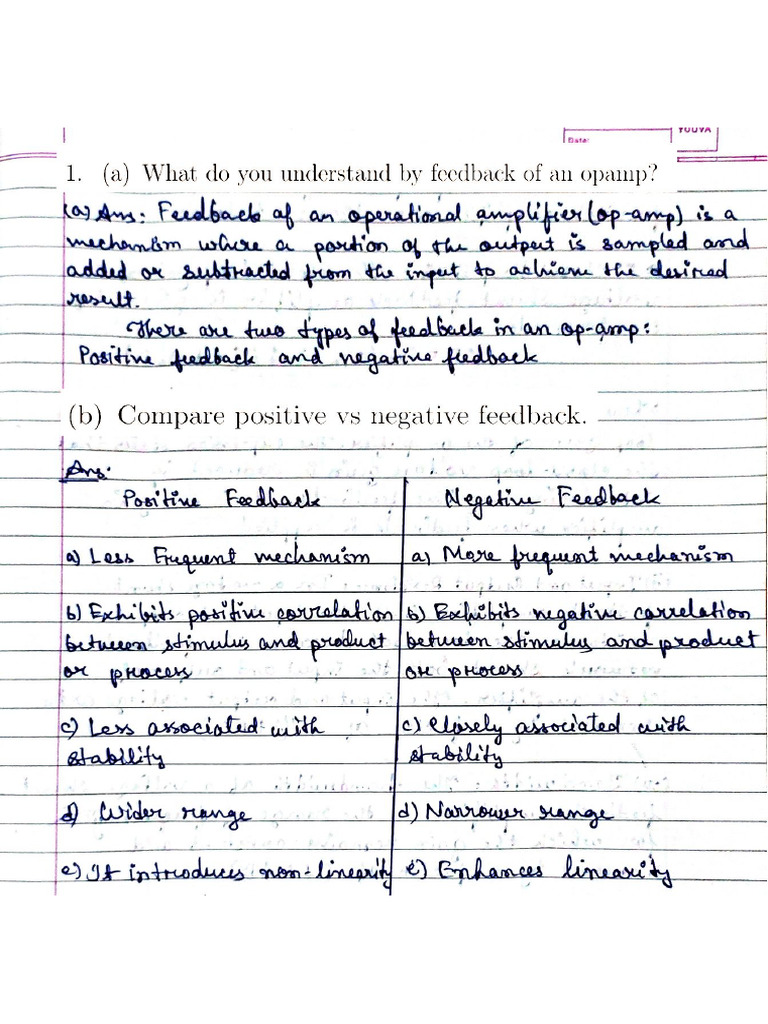 YOUVA
Date:
1. (a) What do you understand by feedback of an opamp?
(a) Ans: Feedback of an operational amplifier (op-amp) is a
mechanism where a portion of the output is sampled and
added or subtracted from the input to achieve the desired
result.
There are two types of feedback in an op-amp:
Positive feedback and negative feedback
(b) Compare positive vs negative feedback.
Ans:
Positive Feedback
Negative Feedback
a) Less Frequent mechanism
a) More frequent mechanism
b) Exhibits positive correlation
between stimulus and product
or process
b) Exhibits negative correlation
between stimulus and product
or process
c) Less associated with
stability
c) Closely associated with
stability
d) Wider range
d) Narrower range
e) It introduces non-linearity
e) Enhances linearity